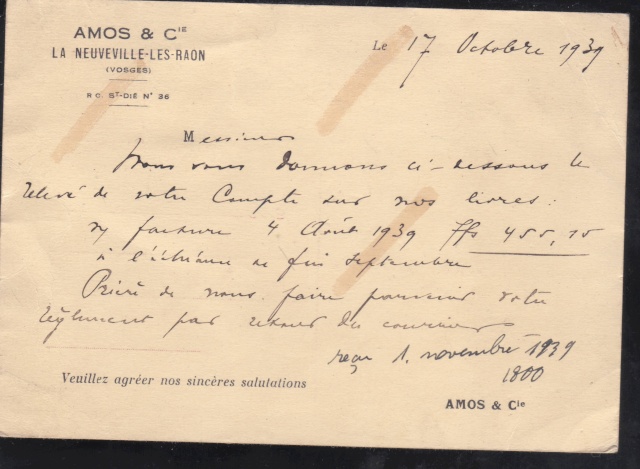 AMOS & CIE
LA NEUVEVILLE-LES-RAON
(VOSGES)
R C. ST-DIÉ N° 36
Le 17 Octobre 1939
Messieurs
Nous vous donnons ci-dessous le
relevé de votre Compte sur nos livres :
n/ facture 4 Août 1939 Ffs 455,15
à l'échéance de fin septembre
Prière de nous faire parvenir votre
règlement par retour du courrier
reçu 1. novembre 1939
1800
Veuillez agréer nos sincères salutations
AMOS & Cie